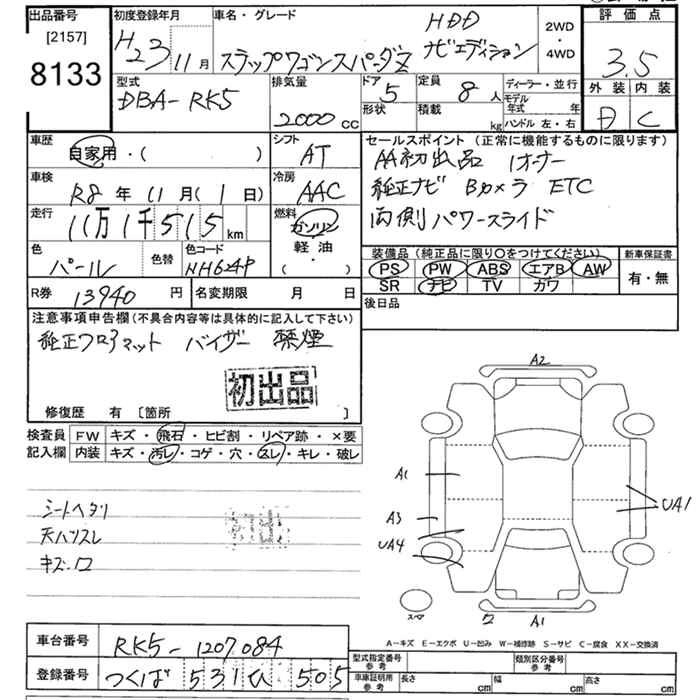 出品番号 [2157] 8133
初度登録年月 H23 11月
車名・グレード ステップワゴンスパーダZ HDD ナビエディション
2WD ・ 4WD
評価点 3.5
外装 内装
C
型式 DBA-RK5
排気量 2000 CC
ドア 5
形状
定員 8 人
積載 kg
ディーラー・並行
モデル年式 年
ハンドル 左・右
車歴 自家用・( )
シフト AT
車検 R8年 11月(1日)
冷房 AAC
走行 11万1千515 km
燃料 ガソリン 軽油 ・( )
色 パール
色替
色コード NH624P
R券 13940 円
名変期限 月 日
セールスポイント(正常に機能するものに限ります)
AA初出品 1オーナー
純正ナビ Bカメラ ETC
両側パワースライド
装備品(純正品に限り○をつけてください)
PS PW ABS エアB AW
SR ナビ TV カワ
新車保証書 有・無
後日品
注意事項申告欄(不具合内容等は具体的に記入して下さい)
純正フロアマット バイザー 禁煙
初出品
修復歴 有 [箇所 ]
検査員記入欄
FW キズ・飛石・ヒビ割・リペア跡・×要
内装 キズ・汚レ・コゲ・穴・スレ・キレ・破レ
シートヘタリ
天ハリスレ
キズ・ワロ
初出
A2
A1
A3
UA4
UA1
スペア
ワ
A1
A-キズ E-エクボ U-凹み W-補修跡 S-サビ C-腐食 XX-交換済
車台番号 RK5-1207084
登録番号 つくば 531 ひ 505
型式指定番号 参考
類別区分番号 参考
車庫証明用 参考 長さ cm 幅 cm 高さ cm